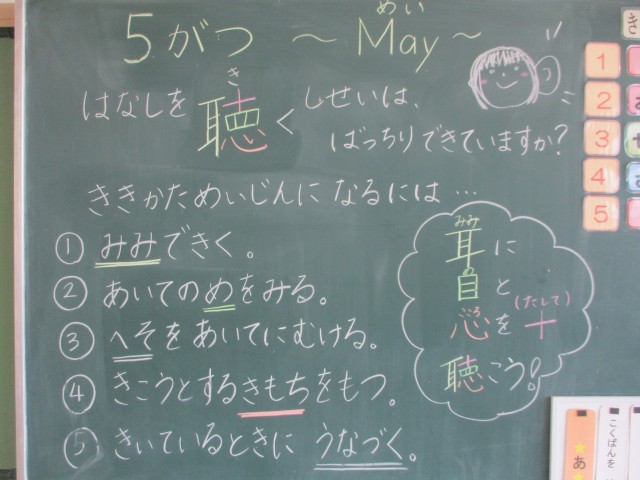 5がつ ～ May ～
めい
はなしを聴くしせいは、
き
ばっちりできていますか?
ききかためいじんになるには…
① みみできく。
② あいてのめをみる。
③ へそをあいてにむける。
④ きこうとするきもちをもつ。
⑤ きいているときにうなづく。
みみ
耳に
目と
(たして)
心を十
聴こう!
き
1
2
3
4
5
こくばんを
あ